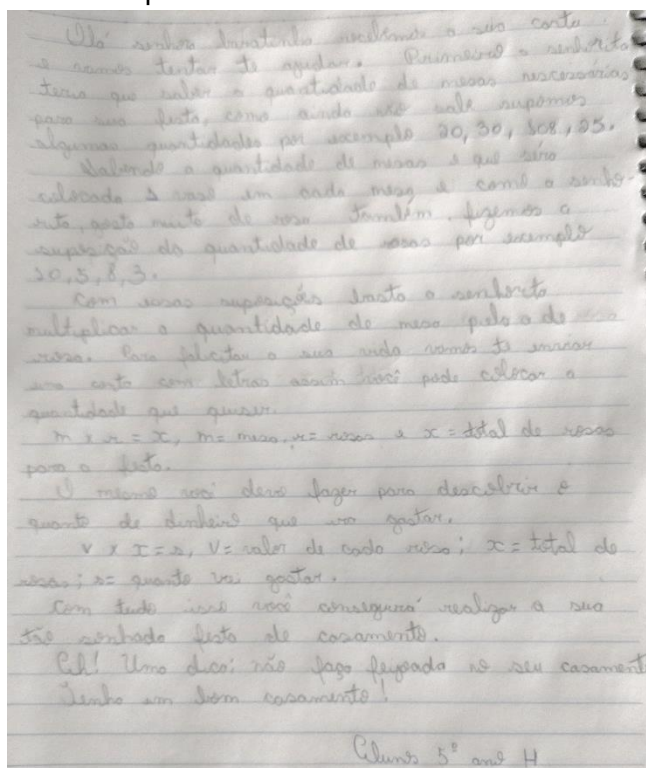 Olá senhora baratinha recebemos a sua carta
e vamos tentar te ajudar. Primeiro a senhorita
teria que saber a quantidade de mesas nescessárias
para sua festa, como ainda não sabe supomos
algumas quantidades por exemplo 20, 30, 108, 25.
Sabendo a quantidade de mesas e que será
colocado 1 vaso em cada mesa e como a senho-
rita, gosta muito de rosa também, fizemos a
suposição da quantidade de rosas por exemplo
10, 5, 8, 3.
Com essas suposições basta a senhorita
multiplicar a quantidade de mesa pela a de
rosa. Para falicitar a sua vida vamos te enviar
uma carta com letras assim você pode colocar a
quantidade que quiser.
m x r = x, m= mesa, r= rosas e x = total de rosas
para a festa.
O mesmo você deve fazer para descobrir o
quanto de dinheiro que vai gastar.
V x X = s, V= valor de cada rosa; x= total de
rosas; s= quanto vai gastar.
Com tudo isso você conseguirá realizar a sua
tão sonhada festa de casamento.
Ah! Uma dica: não faça feijoada no seu casament
Tenha um bom casamento!
Aluno 5º ano H